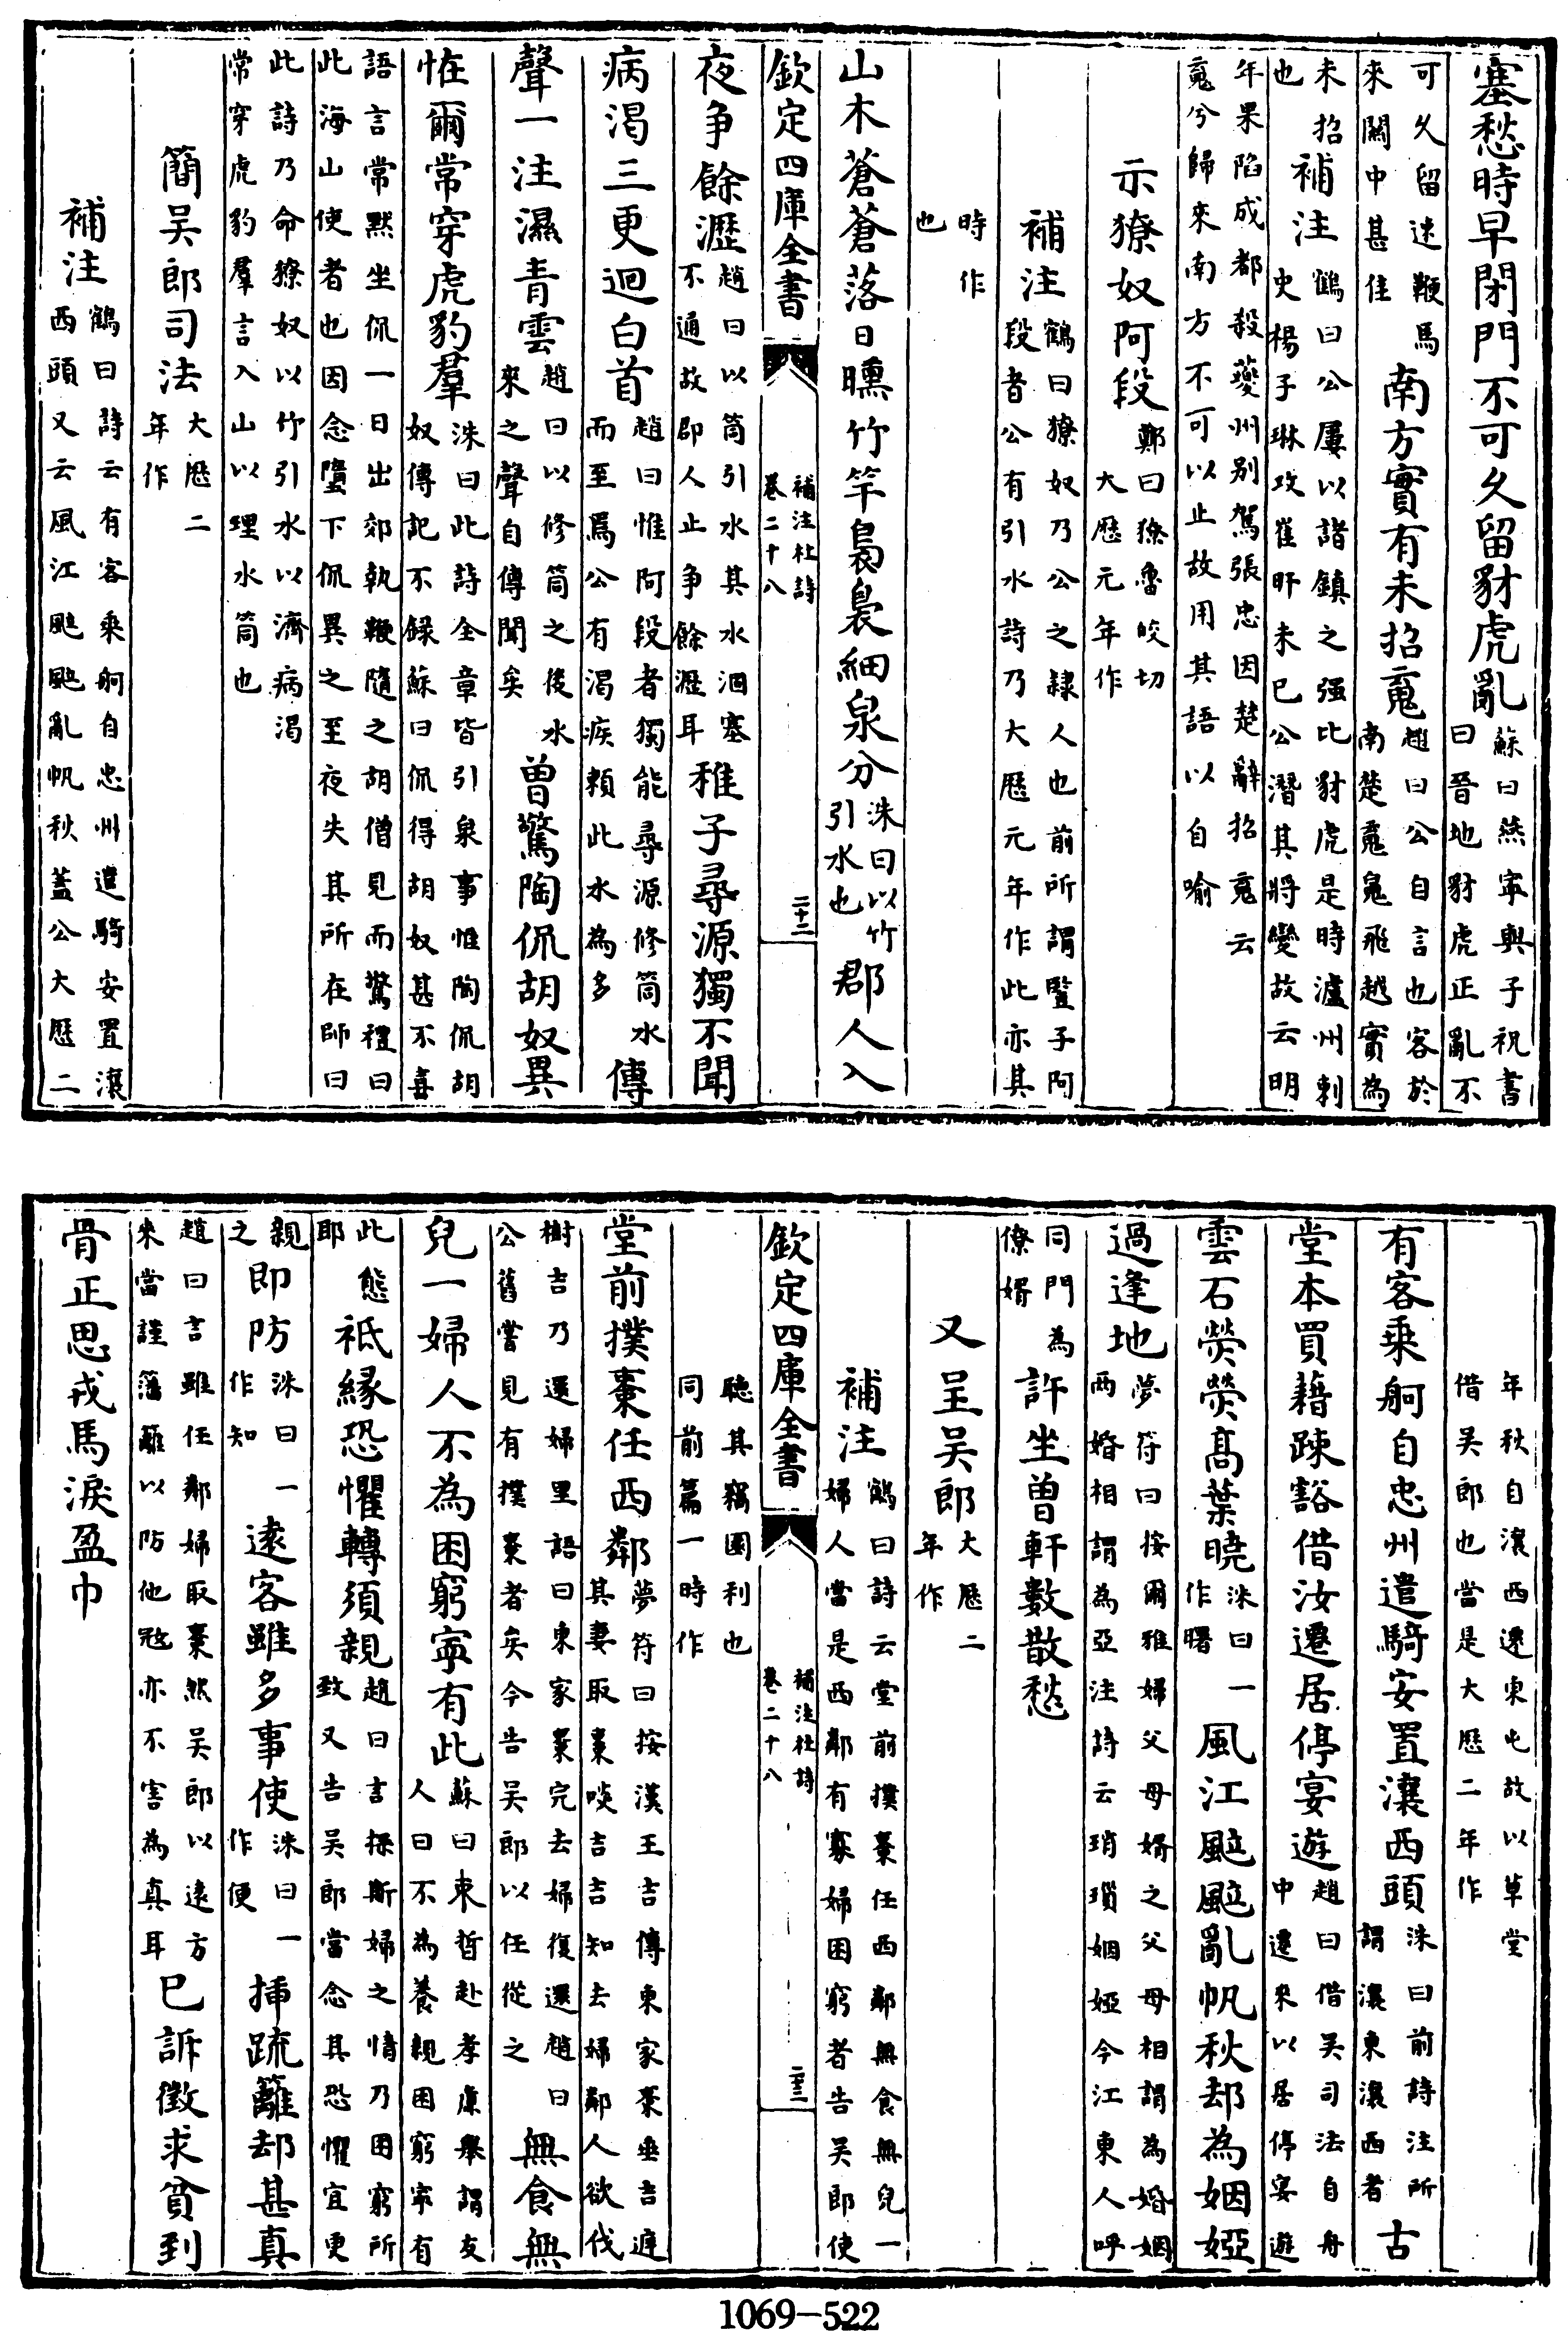 塞愁時早閉門不可久留豺虎亂蘇曰燕寕與子祝書曰晉地豺虎正亂不
可久留速鞭馬來闗中甚佳南方實有未招䰟趙曰公自言也客於南楚䰟䰟飛越實為
未招也補注鶴曰公屢以諸鎮之强比豺虎是時瀘州刺史楊子琳攻崔旰未已公潛其將變故云明
年果陷成都殺夔州别駕張忠因楚辭招䰟云䰟兮歸來南方不可以止故用其語以自喻
示獠奴阿段鄭曰獠魯皎切大歴元年作
補注鶴曰獠奴乃公之隸人也前所謂豎子阿段者公有引水詩乃大歴元年作此亦其
時作也
山木蒼蒼落日曛竹竿裊裊細泉分洙曰以竹引水也郡人入
欽定四庫全書
補注杜詩
卷二十八
二十二
夜争餘瀝趙曰以筒引水其水洄塞不通故郡人止争餘瀝耳稚子尋源獨不聞
病渴三更迴白首趙曰惟阿段者獨能尋源修筒水而至爲公有渴疾頼此水為多傳
聲一注濕青雲趙曰以修筒之後水來之聲自傳聞矣曾驚陶侃胡奴異
怪爾常穿虎豹羣洙曰此詩全章皆引泉事惟陶侃胡奴傳記不録蘇曰侃得胡奴甚不喜
語言常黙坐侃一日出郊執鞭隨之胡僧見而驚禮曰此海山使者也因念墮下侃異之至夜失其所在師曰
此詩乃命獠奴以竹引水以濟病渴常穿虎豹羣言入山以理水筒也
簡吴郎司法大歴二年作
補注鶴曰詩云有客乗舸自忠州遣騎安置瀼西頭又云風江颭颭亂帆秋葢公大歴二
年秋自瀼西遷東屯故以草堂借吴郎也當是大歴二年作
有客乗舸自忠州遣騎安置瀼西頭洙曰前詩注所謂瀼東瀼西者古
堂本買藉踈豁借汝遷居停宴遊趙曰借吴司法自舟中遷來以居停宴遊
雲石熒熒髙葉曉洙曰一作曙風江颭颭亂帆秋却為姻婭
過逢地夢符曰按爾雅婦父母婿之父母相謂為婚姻兩婚相謂為亞注詩云瑣瑣姻婭今江東人呼
同門為僚婿許坐曽軒數散愁
又呈吴郎大歴二年作
補注鶴曰詩云堂前撲棗任西鄰無食無兒一婦人當是西鄰有寡婦困窮者告吴郎使
欽定四庫全書
補注杜詩
卷二十八
二十三
聽其竊園利也同前篇一時作
堂前撲棗任西鄰夢符曰按漢王吉傳東家棗垂吉庭其妻取棗啖吉吉知去婦鄰人欲伐
樹吉乃還婦里語曰東家棗完去婦復還趙曰公舊嘗見有撲棗者矣今告吴郎以任從之無食無
兒一婦人不為困窮寧有此蘇曰束晳赴孝亷舉謂友人曰不為養親困窮寧有
此態耶祗縁恐懼轉須親趙曰言探斯婦之情乃困窮所致又告吴郎當念其恐懼宜更
親之即防洙曰一作知逺客雖多事使洙曰一作便挿疏籬却甚真
趙曰言雖任鄰婦取棗然吴郎以逺方來當謹藩籬以防他冦亦不害為真耳已訴徴求貧到
骨正思戎馬淚盈巾
1069-522